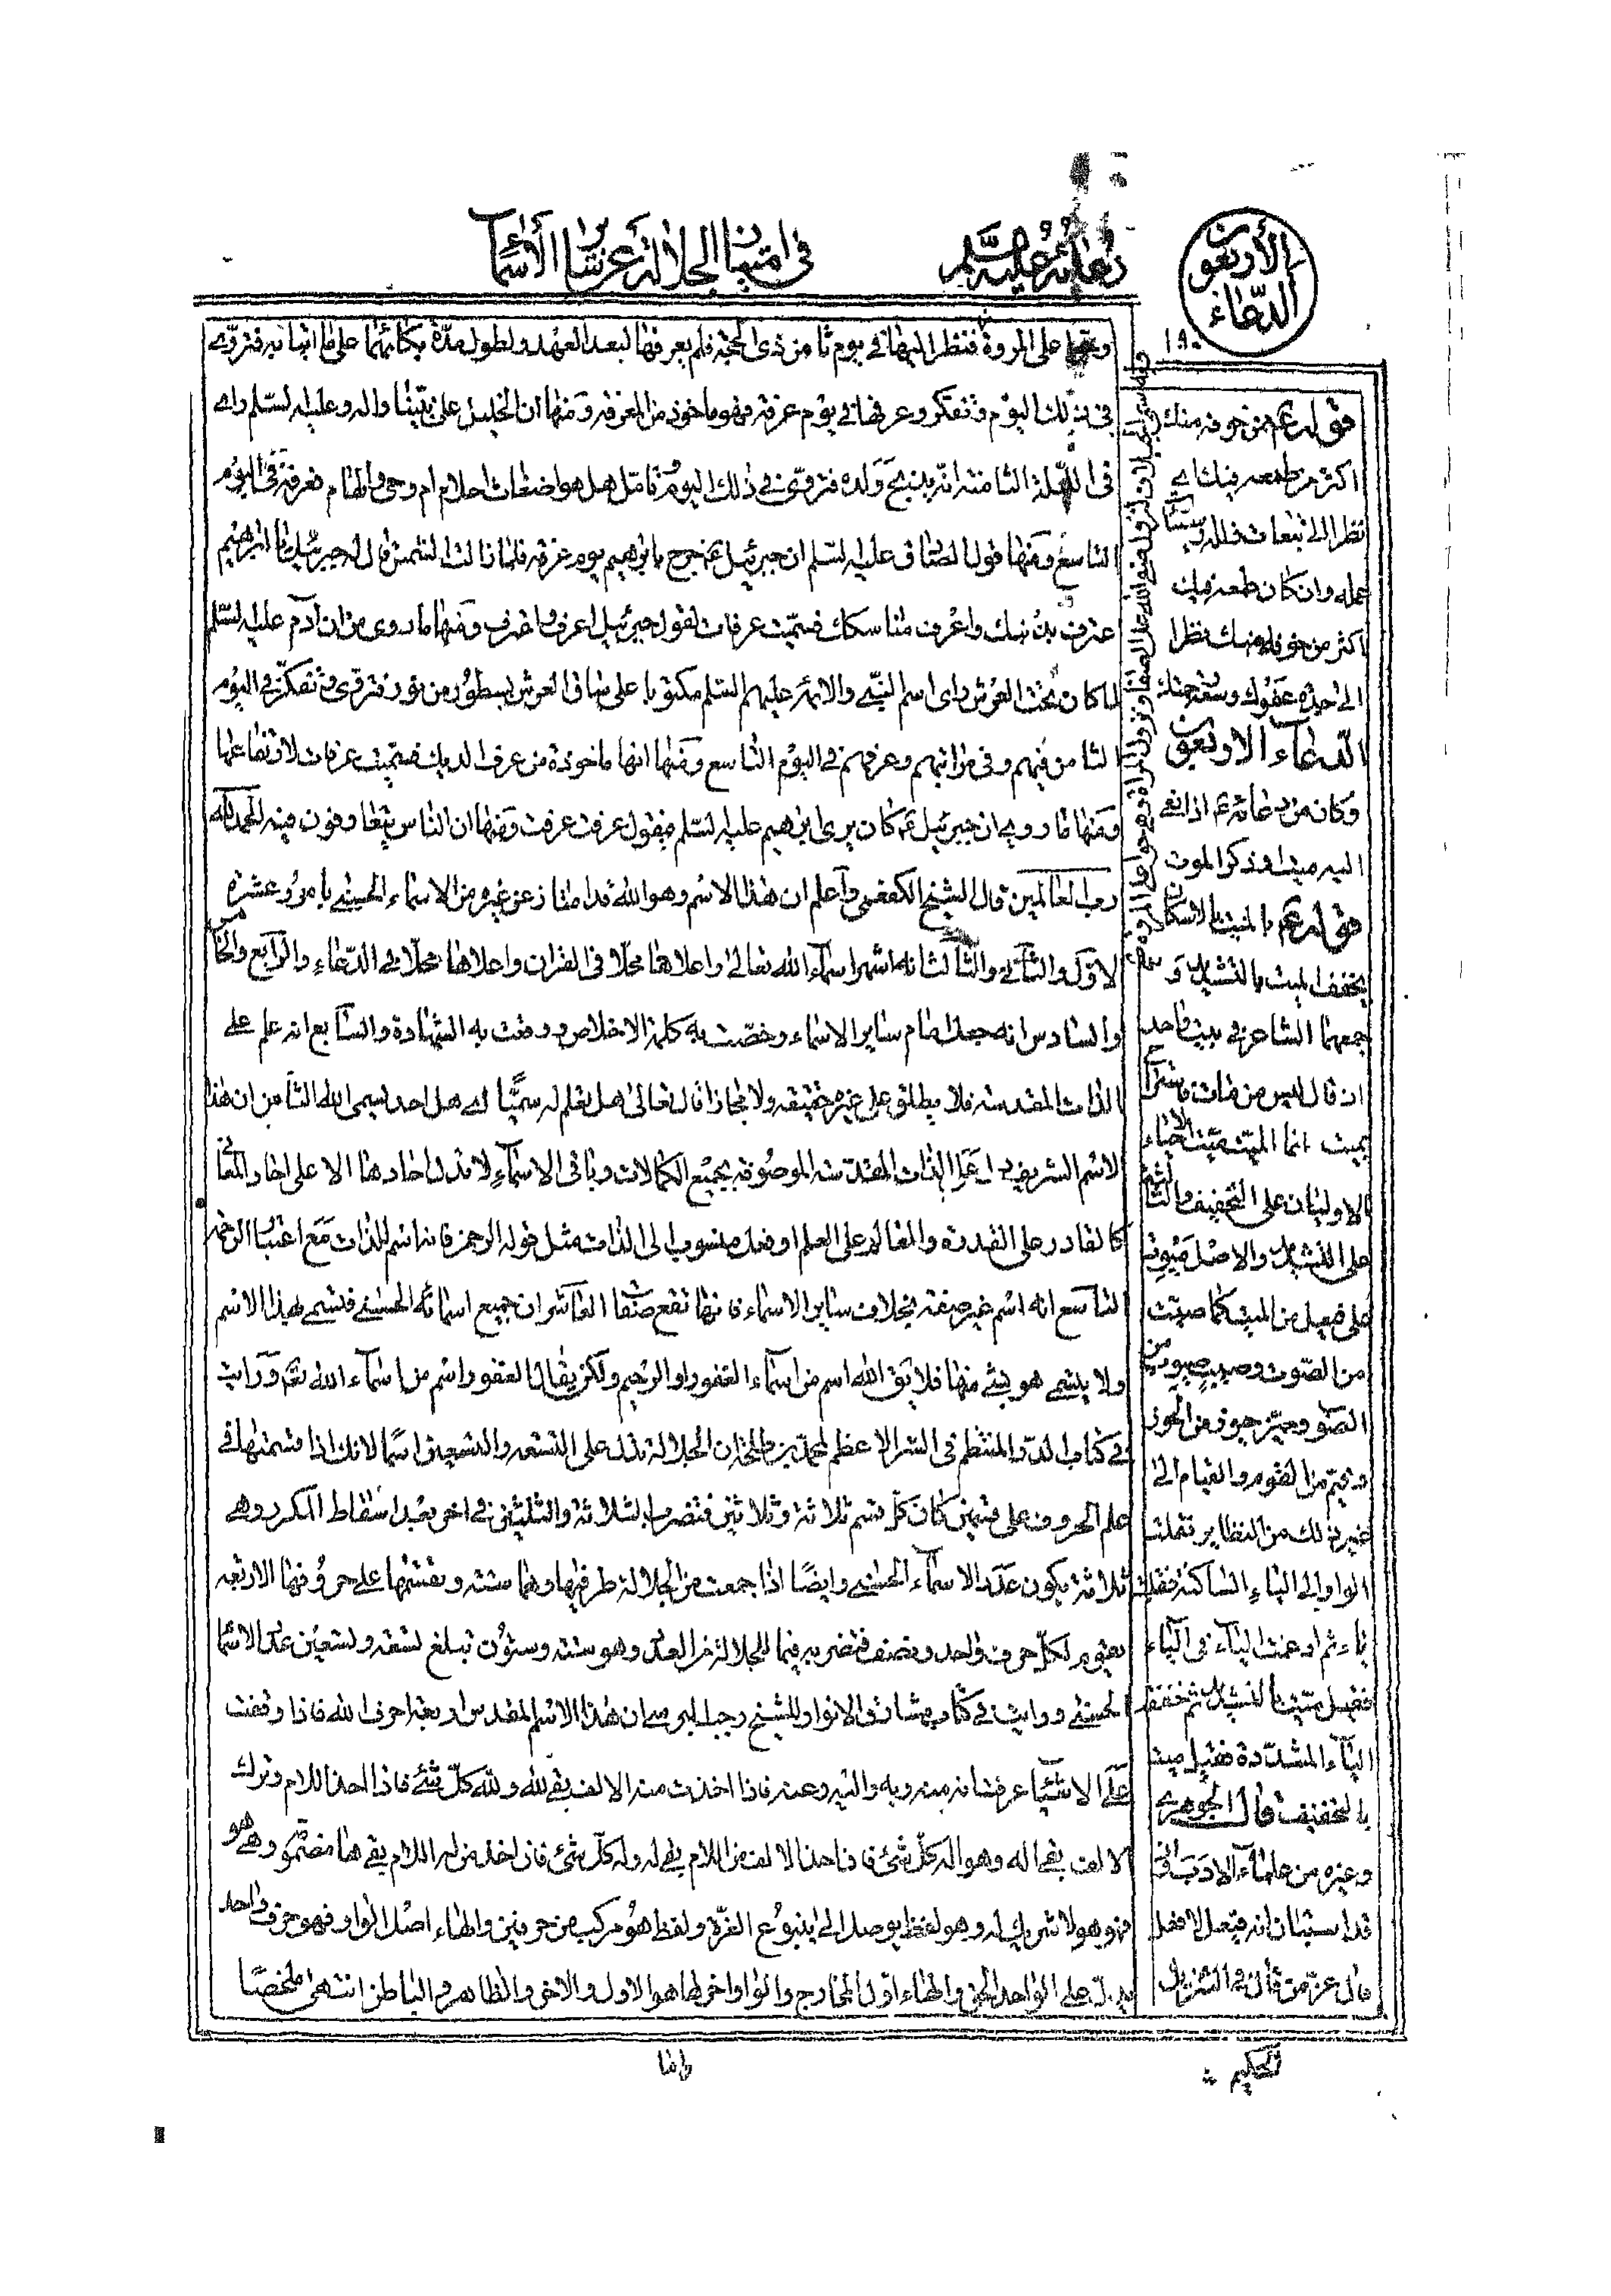 الدعاء الأربعون
دعائه عليه السلم
في امتياز الجلالة عن سائر الأسماء
١٩٠
على المروة فنظر اليها في يوم ثامن ذى الحجة فلم يعرفها لبعد العهد ولطول مدة بكائهما على ما اتيا به فتروى
في ذلك اليوم وتفكر وعرفها في يوم عرفة فهو ماخوذ من المعرفة ومنها ان الخليل على نبينا واله وعليه السلم راى
في الليلة الثامنة انه يذبح ولده فتروى في ذلك اليوم وتامل هل هو اضغاث احلام ام وحى والهام فعرفه في اليوم
التاسع ومنها قول الصادق عليه السلم ان جبرئيل ع خرج بابرهيم يوم عرفة فلما زالت الشمس قال له جبرئيل يا ابرهيم
اعترف بذنبك واعرف مناسكك فسميت عرفات لقول جبرئيل اعرف واعترف ومنها ما روى من ان ادم عليه السلم
لما كان تحت العرش راى اسم النبي والائمة عليهم السلم مكتوبا على ساق العرش بسطور من نور فتروى وتفكر في اليوم
الثامن فيهم وفي مراتبهم وعرفهم في اليوم التاسع ومنها انها ماخوذة من عرف الديك فسميت عرفات لارتفاعها
ومنها ما روى ان جبرئيل ع كان يرى ابرهيم عليه السلم فيقول عرفت عرفت ومنها ان الناس يتعارفون فيه الحمد لله
رب العالمين قال الشيخ الكفعمى واعلم ان هذا الاسم وهو الله قد امتاز عن غيره من الاسماء الحسنى بامور عشرة
الاول والثانى والثالث انه اشهر اسماء الله تعالى واعلاها محلا في القران واعلاها محلا في الدعاء والرابع والخامس
والسادس انه جعل امام ساير الاسماء وخصت به كلمة الاخلاص ووقعت به الشهادة والسابع انه علم على
الذات المقدسة فلا يطلق على غيره حقيقة ولا مجازا قال تعالى هل تعلم له سميا اى هل احد يسمى الله الثامن ان هذا
الاسم الشريف دال على الذات المقدسة الموصوفة بجميع الكمالات وباقى الاسماء لا تدل احادها الا على احاد المعانى
كالقادر على القدرة والعالم على العلم او فعل منسوب الى الذات مثل قوله الرحمن فانه اسم للذات مع اعتبار الرحمة
التاسع انه اسم غير صفة بخلاف ساير الاسماء فانها تقع صفات العاشر ان جميع اسمائه الحسنى فتسمى بهذا الاسم
ولا يتسمى هو بشئ منها فلا يق الله اسم من اسماء الغفور او الرحيم ولكن يقال الغفور اسم من اسماء الله تعم ورايت
في كتاب الدر المنتظم في السر الاعظم لمحمد بن طلحة ان الجلالة تدل على التسعة والتسعين اسما لانك اذا قسمتها في
علم الحروف على قسمين كان كل قسم ثلاثة وثلاثين فتضرب الثلاثة والثلثين في احرفها بعد اسقاط المكرر وهى
ثلاثة يكون عدد الاسماء الحسنى وايضا اذا جمعت من الجلالة طرفيها وهما ستة وتقسمها على حروفها الاربعة
يقوم لكل حرف واحد ونصف فتضربه فيما للجلالة من العدد وهو ستة وستون تبلغ تسعة وتسعين عدد الاسماء
الحسنى ورايت في كتاب مشارق الانوار للشيخ رجب البرسى ان هذا الاسم المقدس اربعة احرف الله فاذا وقفت
على الاشياء عرفت انه منه وبه واليه وعنه فاذا اخذت منه الالف بقى لله ولله كل شئ فاذا اخذ اللام وترك
الالف بقى اله وهو اله كل شئ فاذا اخذ الالف من اللام بقى له وله كل شئ فان اخذ من له اللام بقى هاء مضمومة وهى هو
فهو هو لا شريك له وهو لفظ يوصل الى ينبوع العزة ولفظ هو مركب من حرفين والهاء اصل الواو فهو حرف واحد
يدل على الواحد الحق والهاء اول المخارج والواو اخرها هو الاول والاخر والظاهر والباطن انتهى ملخصا
قوله ع من خوفه منك
اكثر من طمعه فيك اى
نظرا الى تبعات
عمله وان كان طمعه فيك
اكثر من خوفه منك نظرا
الى عفوك وسعة
الدعاء الاربعون
وكان من دعائه ع اذا نعى
اليه ميت او ذكر الموت
قوله ع الميت بالاسكان
مخفف الميت بالتشديد و
جمعهما الشاعر في بيت واحد
ان قال ليس من مات فاستراح
بميت انما الميت ميت الاحياء
الاوليان على التخفيف والثالثة
على التشديد والاصل ميوت
على فعيل من الميت كما صيت
من الصوت وصيب صيوب من
الصوب
وقيم من القوم والقيام الى
غير ذلك من النظاير نقلت
الواو الى الياء الساكنة فقلبت
ياء ثم ادغمت الياء في الياء
فقيل ميت بالتشديد ثم خففت
الياء المشددة فقيل ميت
بالتخفيف قال الجوهرى
وغيره من علماء الادب
قد استبان انه فيعل لا فعل
قال عز من قائل في التنزيل
الحكيم
واما